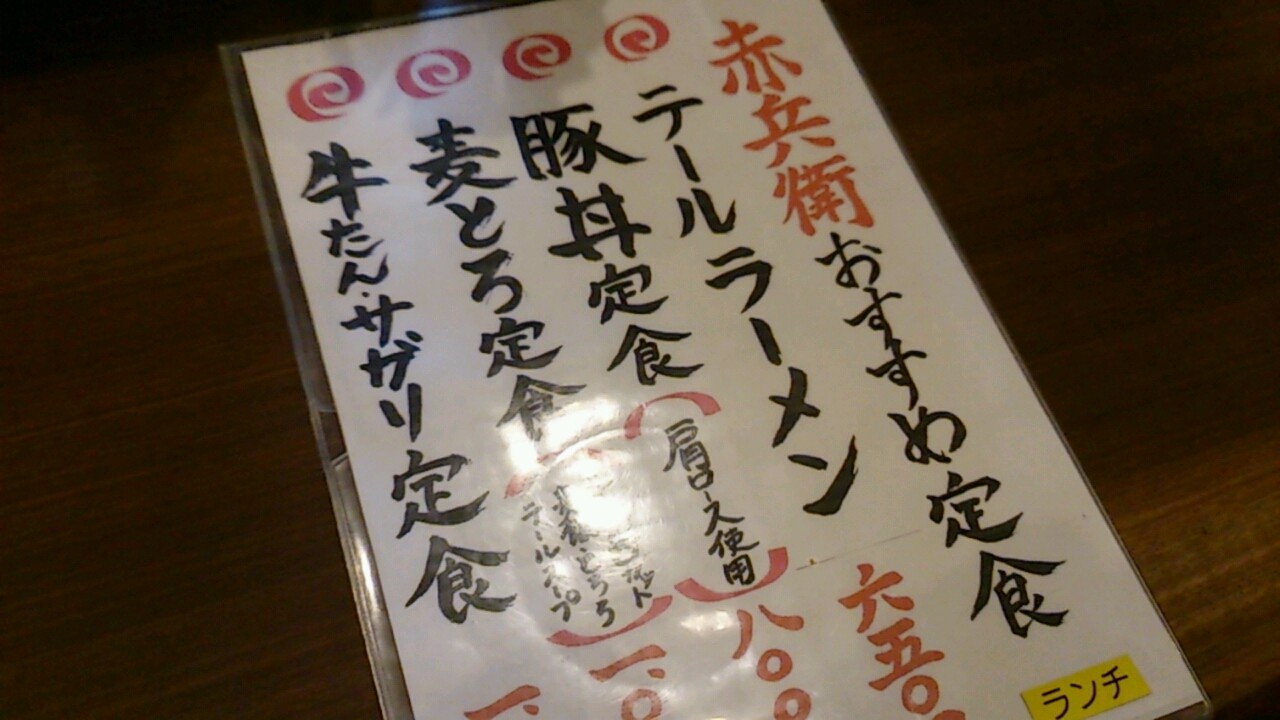 赤兵衛おすすめ定食
テールラーメン 六五〇
豚丼定食(肩ロース使用)八〇〇
麦とろ定食(
とろろ
テールスープ
)一、〇
牛たん・サガリ定食 一、
ランチ